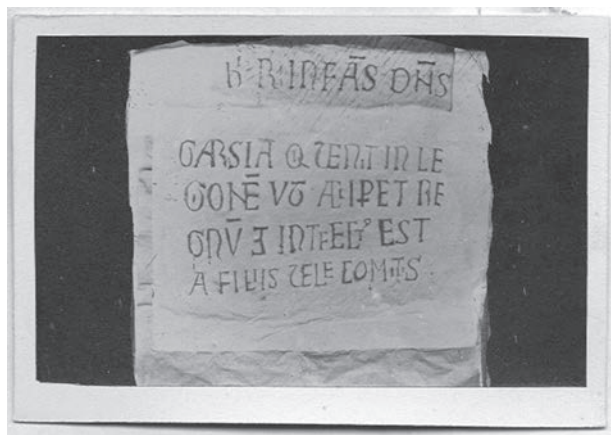 H : R : INFĀS DN̄S
GARSIA Q VENIT IN LE
GIONĒ VT ACIPET RE
GNV̄ Ʒ INTFECTꝰ EST
A FILIIS VELE COMITIS